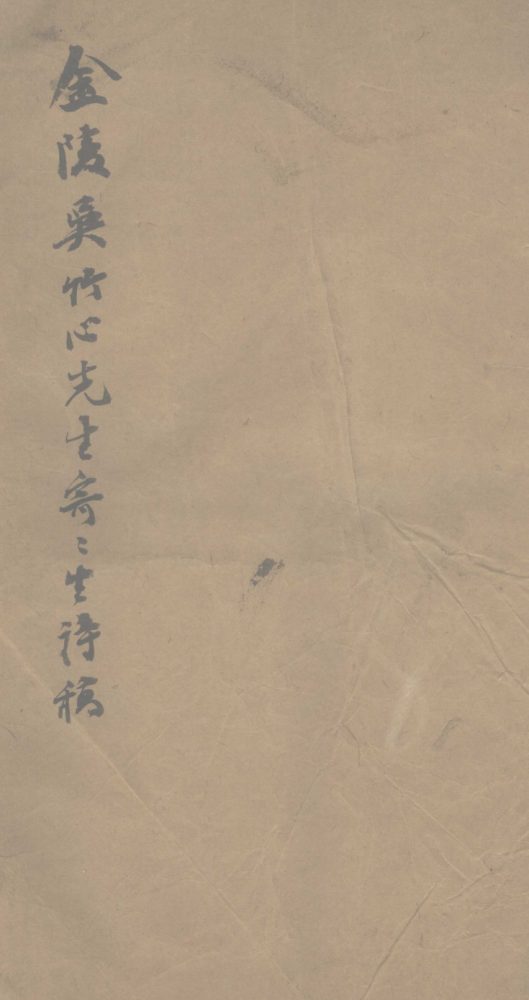 金陵吳竹心先生寄〻生詩稿